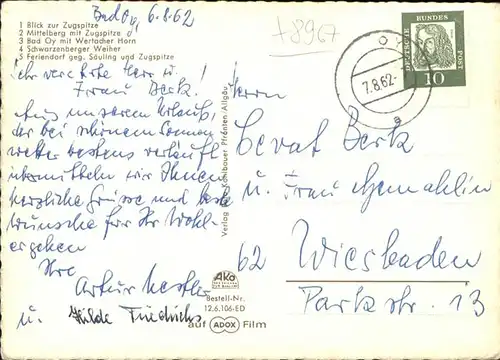 Bad Oy, 6.8.62
1 Blick zur Zugspitze
2 Mittelberg mit Zugspitze
3 Bad Oy mit Wertacher Horn
4 Schwarzenberger Weiher
5 Feriendorf geg. Säuling und Zugspitze
Sehr verehrter Herr u.
Frau Berk!
Aus unserem Urlaub,
der bei schönem Sonnen
wetter bestens verläuft
übermitteln wir Ihnen
herzliche Grüsse und beste
Wünsche für Ihr Wohl-
ergehen
Ihre
Artur
u. Hilde Friedrichs
Verlag Kohlbauer Pfronten/Allgäu
Ako
Bestell-Nr.
12.6.106-ED
auf ADOX Film
+8967
OY
7.8.62
a
DEUTSCHE BUNDESPOST
10
Herrn
Berk
u. Frau Gemahlin
62 Wiesbaden
Parkstr. 13